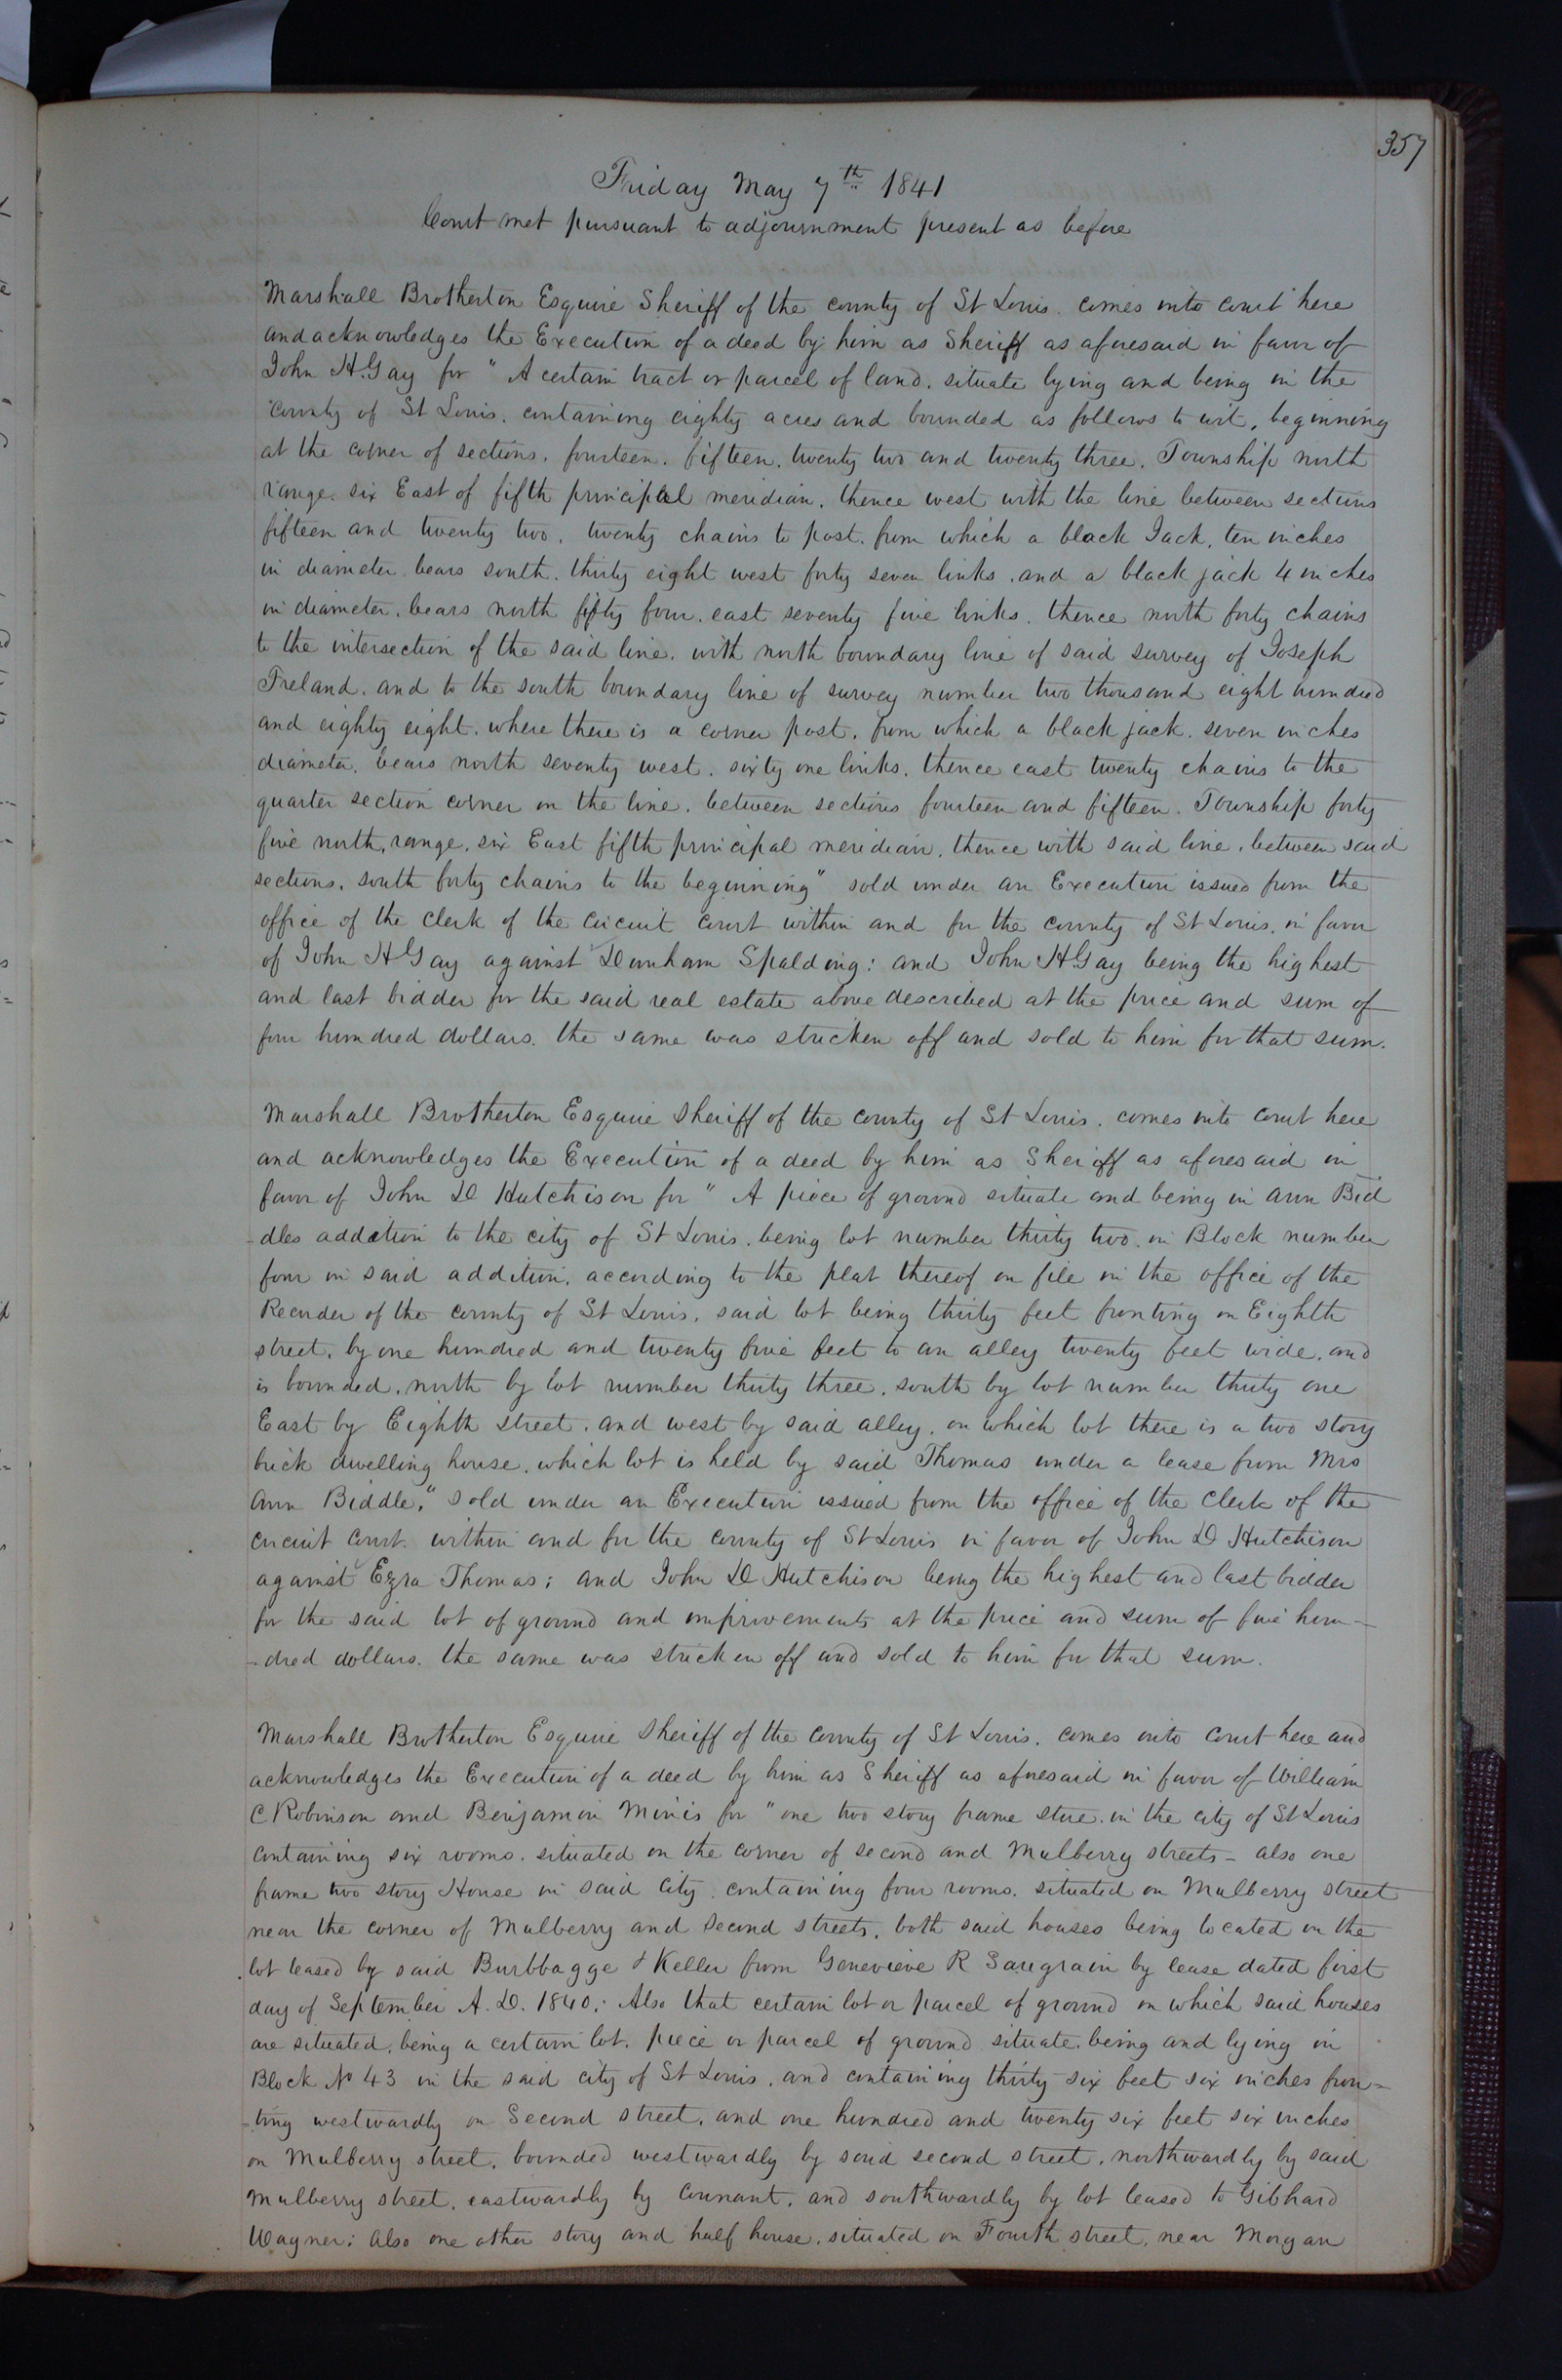 357
Friday May 7th 1841
Court met pursuant to adjournment present as before
Marshall Brotherton Esquire Sheriff of the county of St Louis. comes into court here
and acknowledges the Execution of a deed by him as Sheriff as aforesaid in favor of
John H. Gay for " A certain tract or parcel of land. situate lying and being in the
county of St Louis. containing eighty acres and bounded as follows to wit, beginning
at the corner of sections. fourteen. fifteen. twenty two and twenty three. Township north
range. six East of fifth principal meridian. thence west with the line between sections
fifteen and twenty two. twenty chains to post. from which a black Jack, ten inches
in diameter bears south. thirty eight west forty seven links. and a black jack 4 inches
in diameter. bears north fifty four. east seventy five links. thence north forty chains
to the intersection of the said line. with north boundary line of said survey of Joseph
Freland. and to the south boundary line of survey number two thousand eight hundred
and eighty eight. where there is a corner post. from which a black jack. seven inches
diameter. bears north seventy west. sixty one links. thence east twenty chains to the
quarter section corner on the line. between sections fourteen and fifteen. Township forty
five north, range, six East fifth principal meridian. thence with said line, between said
sections. south forty chains to the beginning" sold under an Execution issued from the
office of the clerk of the circuit court within and for the county of St Louis. in favor
of John H Gay against Dunham Spalding: and John H. Gay being the highest
and last bidder for the said real estate above described at the price and sum of
four hundred dollars. the same was stricken off and sold to him for that sum.
Marshall Brotherton Esquire Sheriff of the county of St Louis. comes into court here
and acknowledges the Execution of a deed by him as Sheriff as aforesaid in
favor of John D Hutchison for " A piece of ground situate and being in Ann Bid
-dles addition to the city of St Louis. being lot number thirty two. in Block number
four in said addition. according to the plat thereof on file in the office of the
Recorder of the county of St Louis, said lot being thirty feet fronting on Eighth
street. by one hundred and twenty five feet to an alley twenty feet wide. and
is bounded. north by lot number thirty three. south by lot number thirty one
East by Eighth street. and west by said alley. on which lot there is a two story
brick dwelling house. which lot is held by said Thomas under a lease from Mrs
Ann Biddle," sold under an Execution issued from the office of the clerk of the
circuit court. within and for the county of St Louis in favor of John D Hutchison
against Ezra Thomas; and John D Hutchison being the highest and last bidder
for the said lot of ground and improvements at the price and sum of five hun-
-dred dollars. the same was stricken off and sold to him for that sum.
Marshall Brotherton Esquire Sheriff of the county of St Louis. comes into court here and
acknowledges the Execution of a deed by him as Sheriff as aforesaid in favor of William
C Robinson and Benjamin Minis for " one two story frame store. in the city of St Louis
containing six rooms. situated on the corner of second and Mulberry streets - also one
frame two story House in said city. containing four rooms. situated on Mulberry street
near the corner of Mulberry and Second streets, both said houses being located on the
lot leased by said Burbbagge & Keller from Genevieve R Saugrain by lease dated first
day of September A. D. 1840; Also that certain lot or parcel of ground on which said houses
are situated, being a certain lot. piece or parcel of ground situate. being and lying in
Block No 43 in the said city of St Louis. and containing thirty six feet six inches fron-
-ting westwardly on Second street, and one hundred and twenty six feet six inches
on Mulberry street, bounded westwardly by said second street, northwardly by said
Mulberry street, eastwardly by Connant. and southwardly by lot leased to Gibhard
Wagner: Also one other story and half house. situated on Fourth street, near Morgan